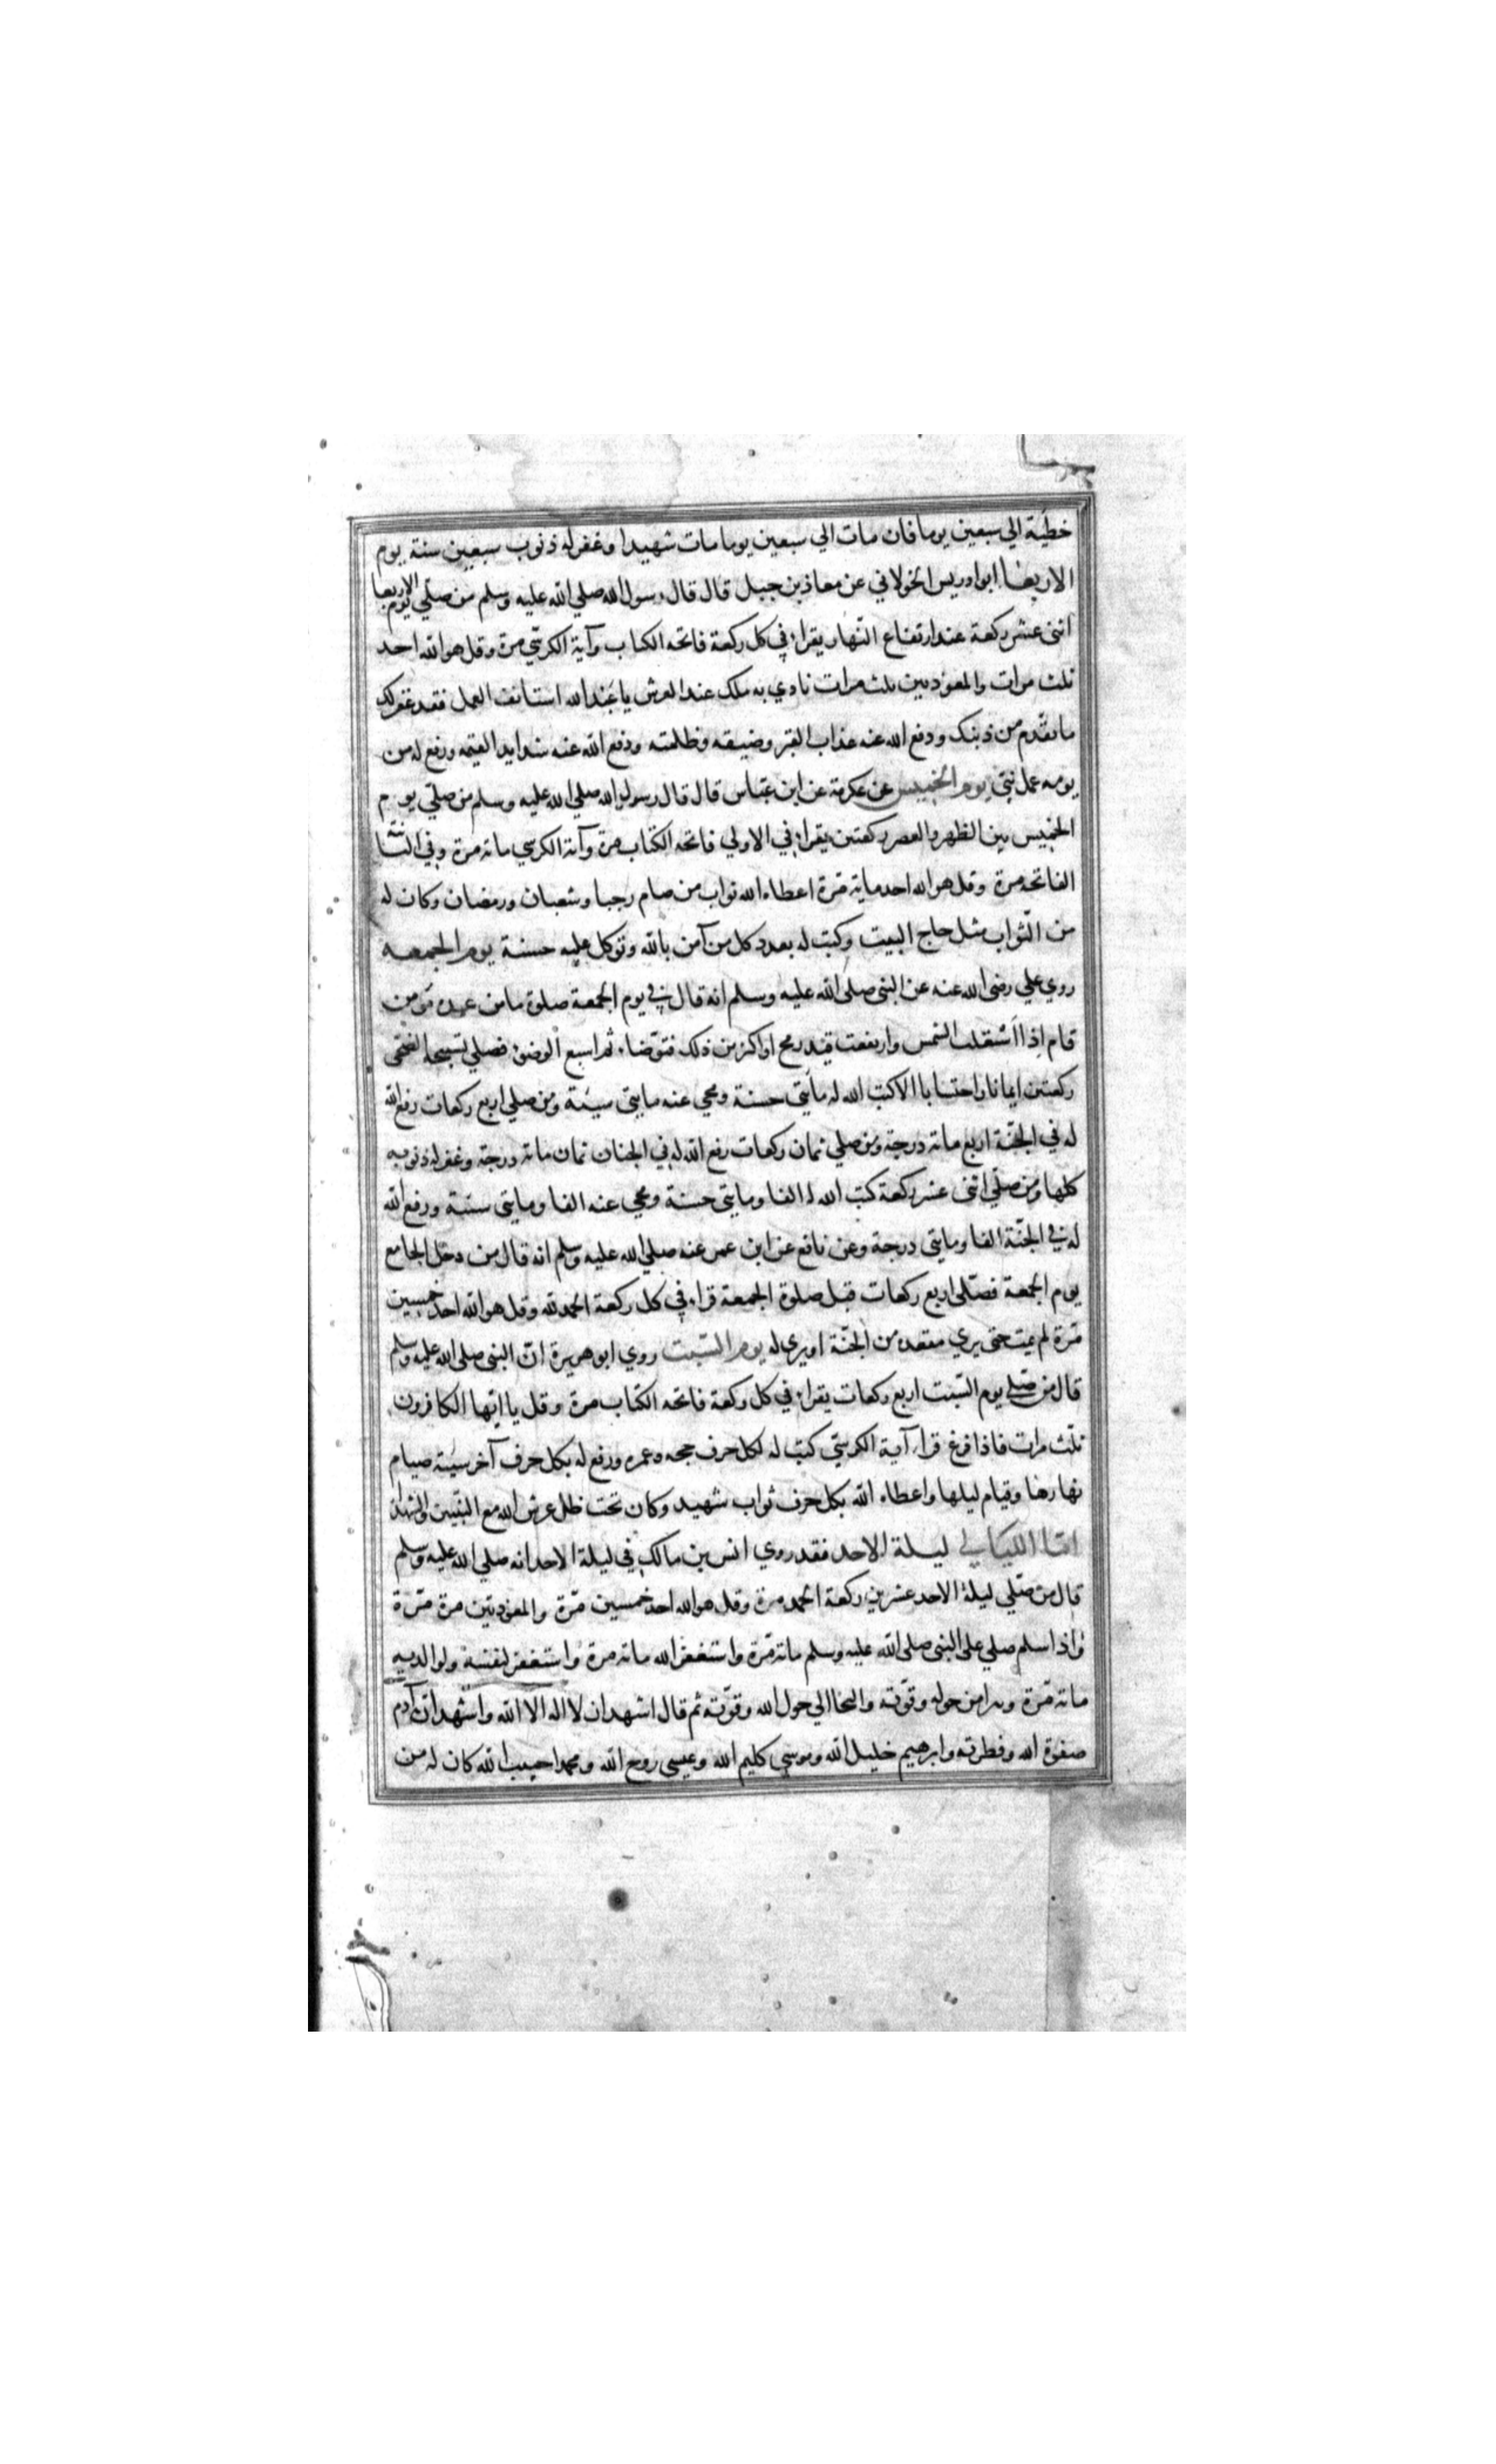 خطيئة الي سبعين يوما فان مات الي سبعين يوما مات شهيدا وغفر له ذنوب سبعين سنة يوم
الاربعا ابو ادريس الخولاني عن معاذ بن جبل قال قال رسول الله صلي الله عليه وسلم من صلي يوم الاربعا
اثنى عشر ركعة عند ارتفاع النهار يقراء في كل ركعة فاتحه الكتاب وآية الكرسي مرة وقل هو الله احد
ثلث مرات والمعوذتين ثلث مرات نادي به ملك عند العرش يا عبد الله استانف العمل فقد غفر لك
ما تقدم من ذنبك ودفع الله عنه عذاب القبر وضيقه وظلمته ودفع الله عنه شدايد القيمه ورفع له من
يومه عمل نبي يوم الخميس عن عكرمة عن ابن عباس قال قال رسول الله صلي الله عليه وسلم من صلي يوم
الخميس بين الظهر والعصر ركعتين يقراء في الاولي فاتحه الكتاب مرة وآية الكرسي ماته مرة وفي الثانية
الفاتحه مرة وقل هو الله احد ماية مرة اعطاه الله ثواب من صام رجبا وشعبان ورمضان وكان له
من الثواب مثل حاج البيت وكتب له بعدد كل من آمن بالله وتوكل عليه حسنة يوم الجمعه
روي علي رضى الله عنه عن النبى صلى الله عليه وسلم انه قال في يوم الجمعة صلوة ما من عبد مومن
قام اذا اشتقلت الشمس وارتفعت قيد رمح او اكثر من ذلك فتوضاء ثم اسبع الوضوء فصلي تسبيحة الضحى
ركعتين ايمانا واحتسابا الا كتب الله له مأيتي حسنة ومحي عنه مايتي سيئة ومن صلي اربع ركعات رفع الله
له في الجنة اربع ماته درجة ومن صلي ثمان ركعات رفع الله له في الجنان ثمان ماته درجة وغفر له ذنوبه
كلها ومن صلي اثنى عشر ركعة كتب الله له الفا ومايتي حسنة ومحي عنه الفا ومايتي سيئة ورفع الله
له في الجنة الفا ومايتي درجة وعن نافع عن ابن عمر عنه صلي الله عليه وسلم انه قال من دخل الجامع
يوم الجمعة فصلى اربع ركعات قبل صلوة الجمعة قراء في كل ركعة الحمد لله وقل هو الله احد خمسين
مرة لم يمت حتى يري مقعده من الجنة او يري له يوم السبت روي ابو هريرة ان النبى صلى الله عليه وسلم
قال من صلى يوم السبت اربع ركعات يقراء في كل ركعة فاتحه الكتاب مرة وقل يا ايها الكافرون
ثلث مرات فاذا فرغ قراء آية الكرسي كتب له لكل حرف حجه وعمره ورفع له بكل حرف آخر سنة صيام
نهارها وقيام ليلها واعطاه الله بكل حرف ثواب شهيد وكان تحت ظل عرش الله مع النبيين والشهدا
اما الليالي ليلة الاحد فقد روي انس بن مالك في ليلة الاحد انه صلي الله عليه وسلم
قال من صلي ليلة الاحد عشرين ركعة الحمد مرة وقل هو الله احد خمسين مرة والمعوذتين مرة مرة
واذا سلم صلي على النبى صلى الله عليه وسلم ماته مرة واستغفر الله ماته مرة واستغفر لنفسه ولوالديه
ماته مرة وبرا من حوله وقوته والتجا الي حول الله وقوته ثم قال اشهد ان لا اله الا الله واشهد ان آدم
صفوة الله وفطرته وابرهيم خليل الله وموسي كليم الله وعيسى روح الله ومحمدا حبيب الله كان له من